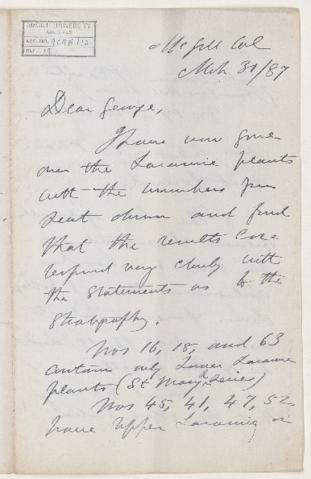 McGILL UNIVERSITY
ARCHIVES
ACC. NO.
REF.
McGill Col
Mch 31/87
Dear George,
I have now gone
over the Laramie plants
with the numbers you
sent down and find
that the results cor-
respond very closely with
the statements as to the
Stratigraphy.
Nos 16, 18, and 63
contain only Lower Laramie
plants (St Mary's series)
Nos 45, 41, 47, 52
have Upper Laramie or